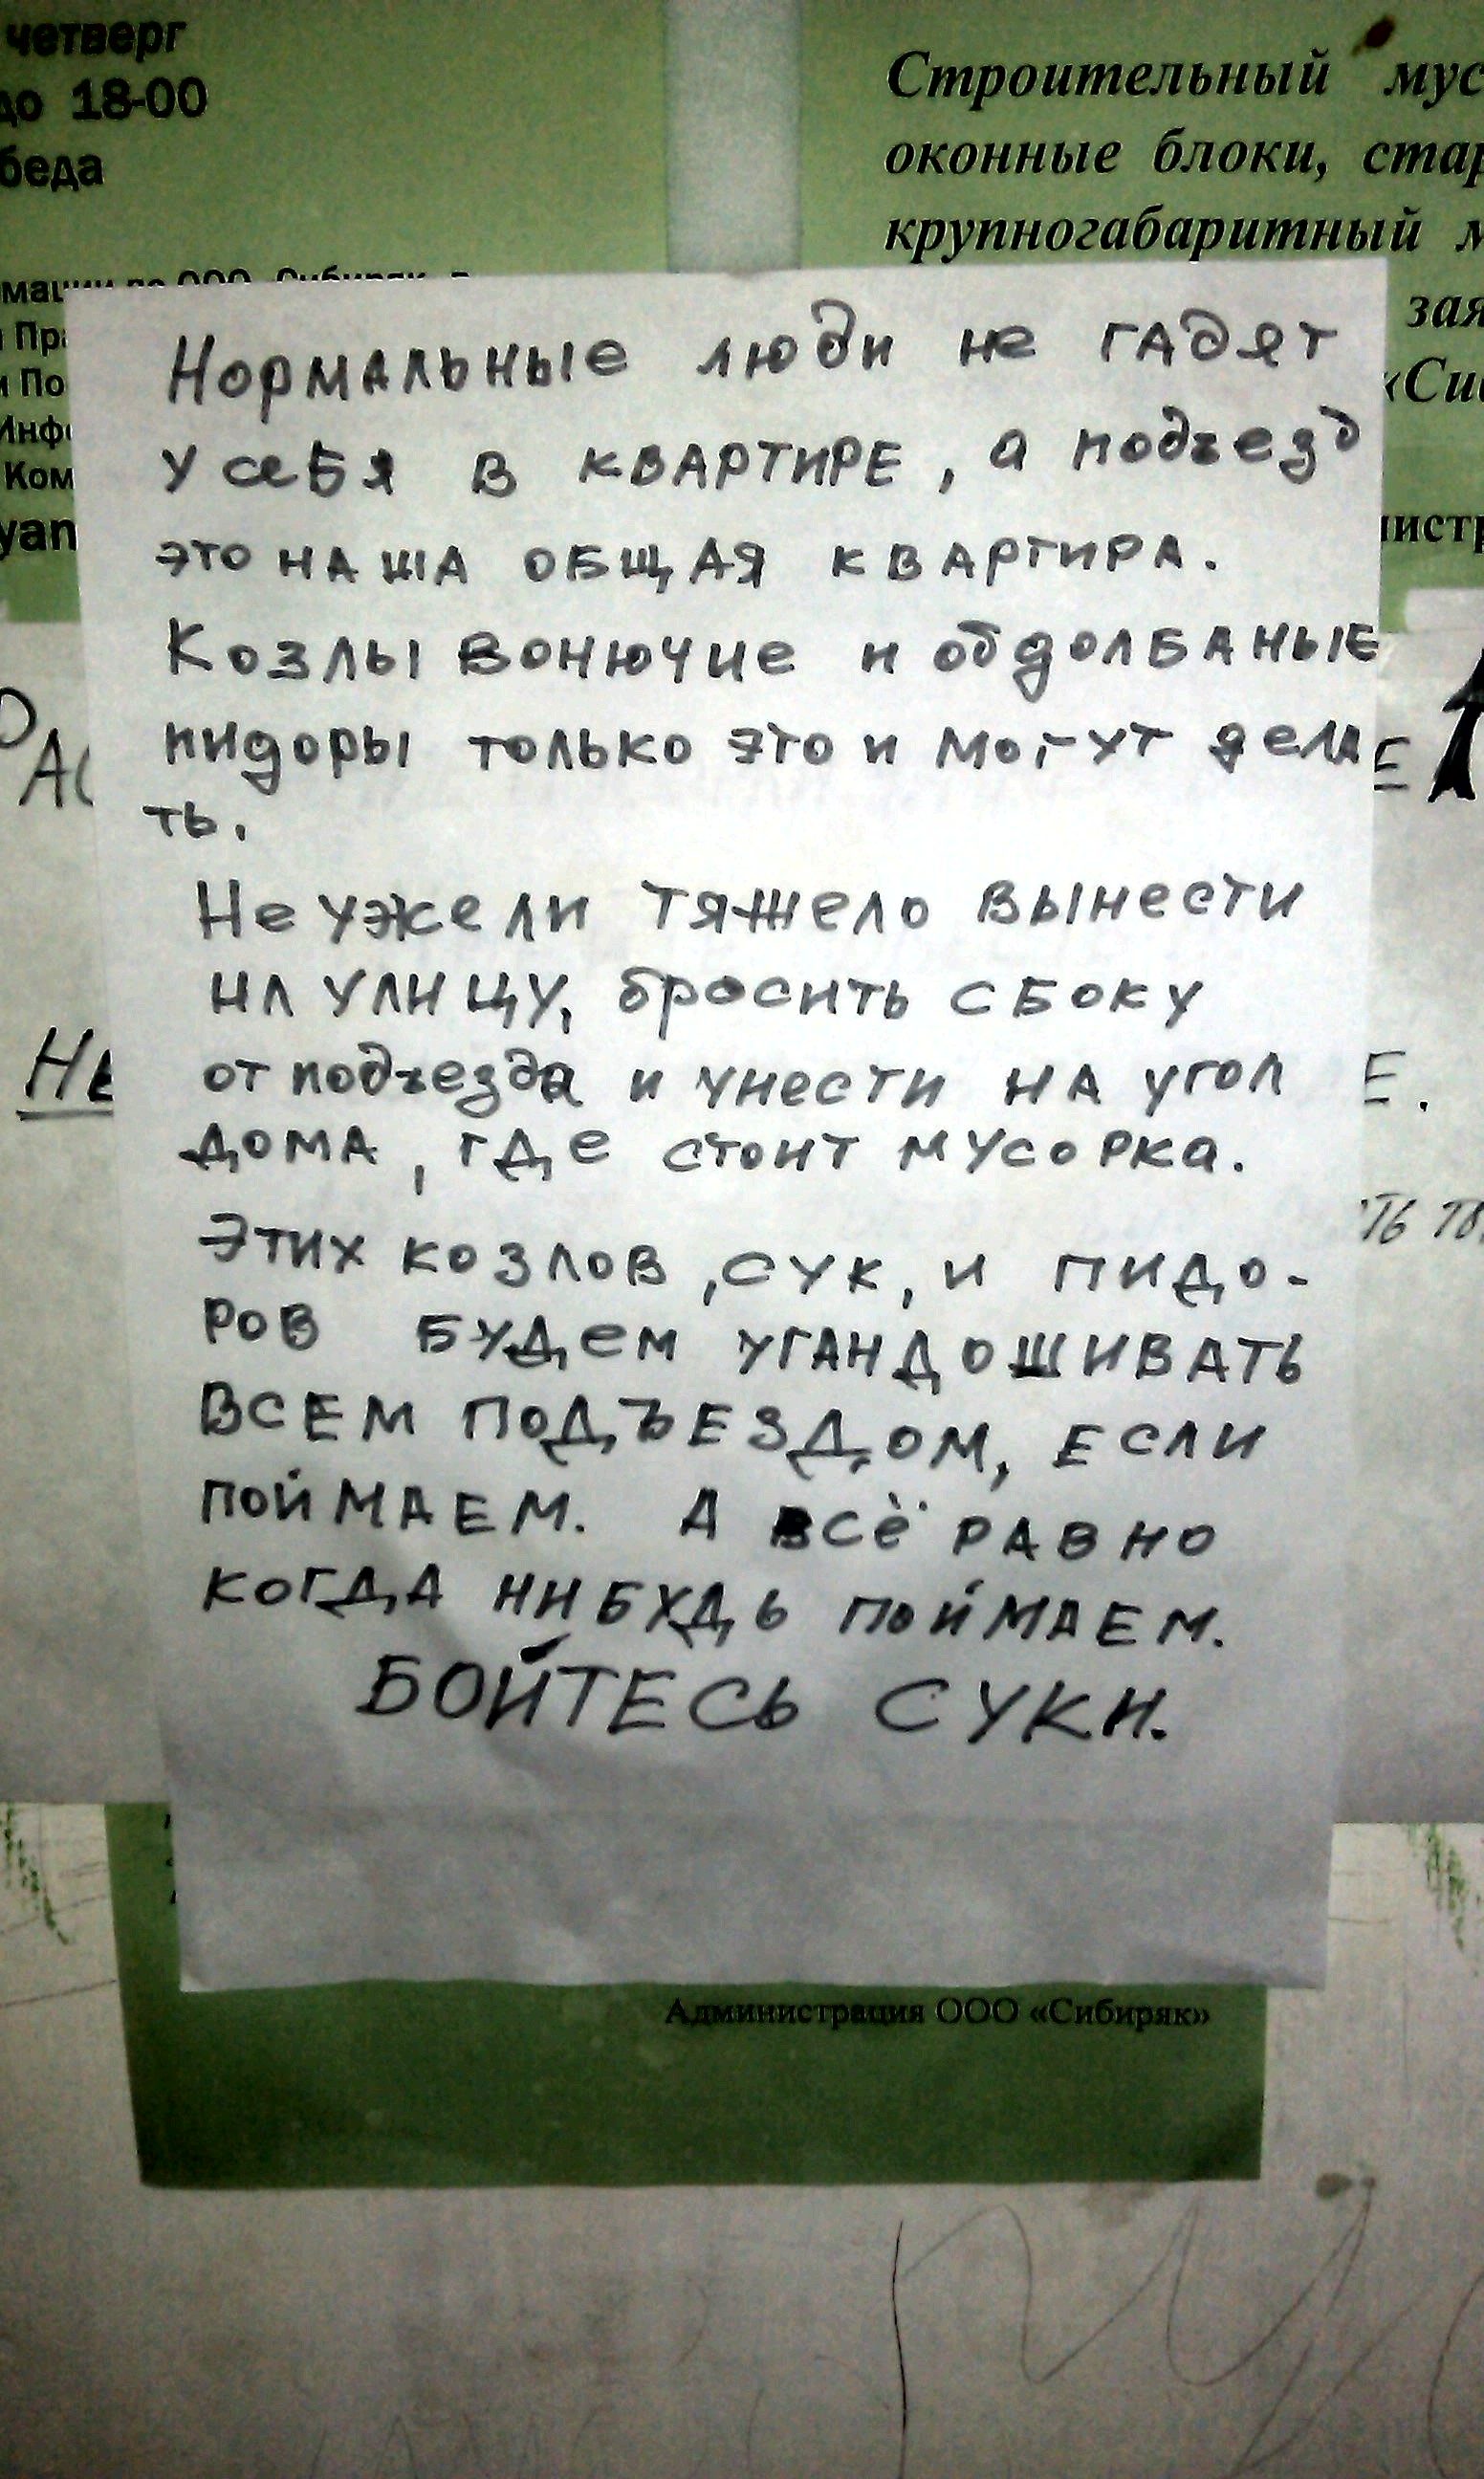 четверг
до 18-00
Строительный
оконные блоки,
крупногабаритный
Нормальные люди не гадят
у себя в квартире, а подъезд
это наша общая квартира.
Козлы вонючие и обдолбаные
пидоры только это и могут дела
ть.
Неужели тяжело вынести
на улицу, бросить сбоку
от подъезда и унести на угол
дома, где стоит мусорка.
Этих козлов, сук, и пидо-
ров будем угандошивать
всем подъездом, если
поймаем. А всё равно
когда нибудь поймаем.
БОЙТЕСЬ СУКИ.
Администрация ООО «Сибиряк»